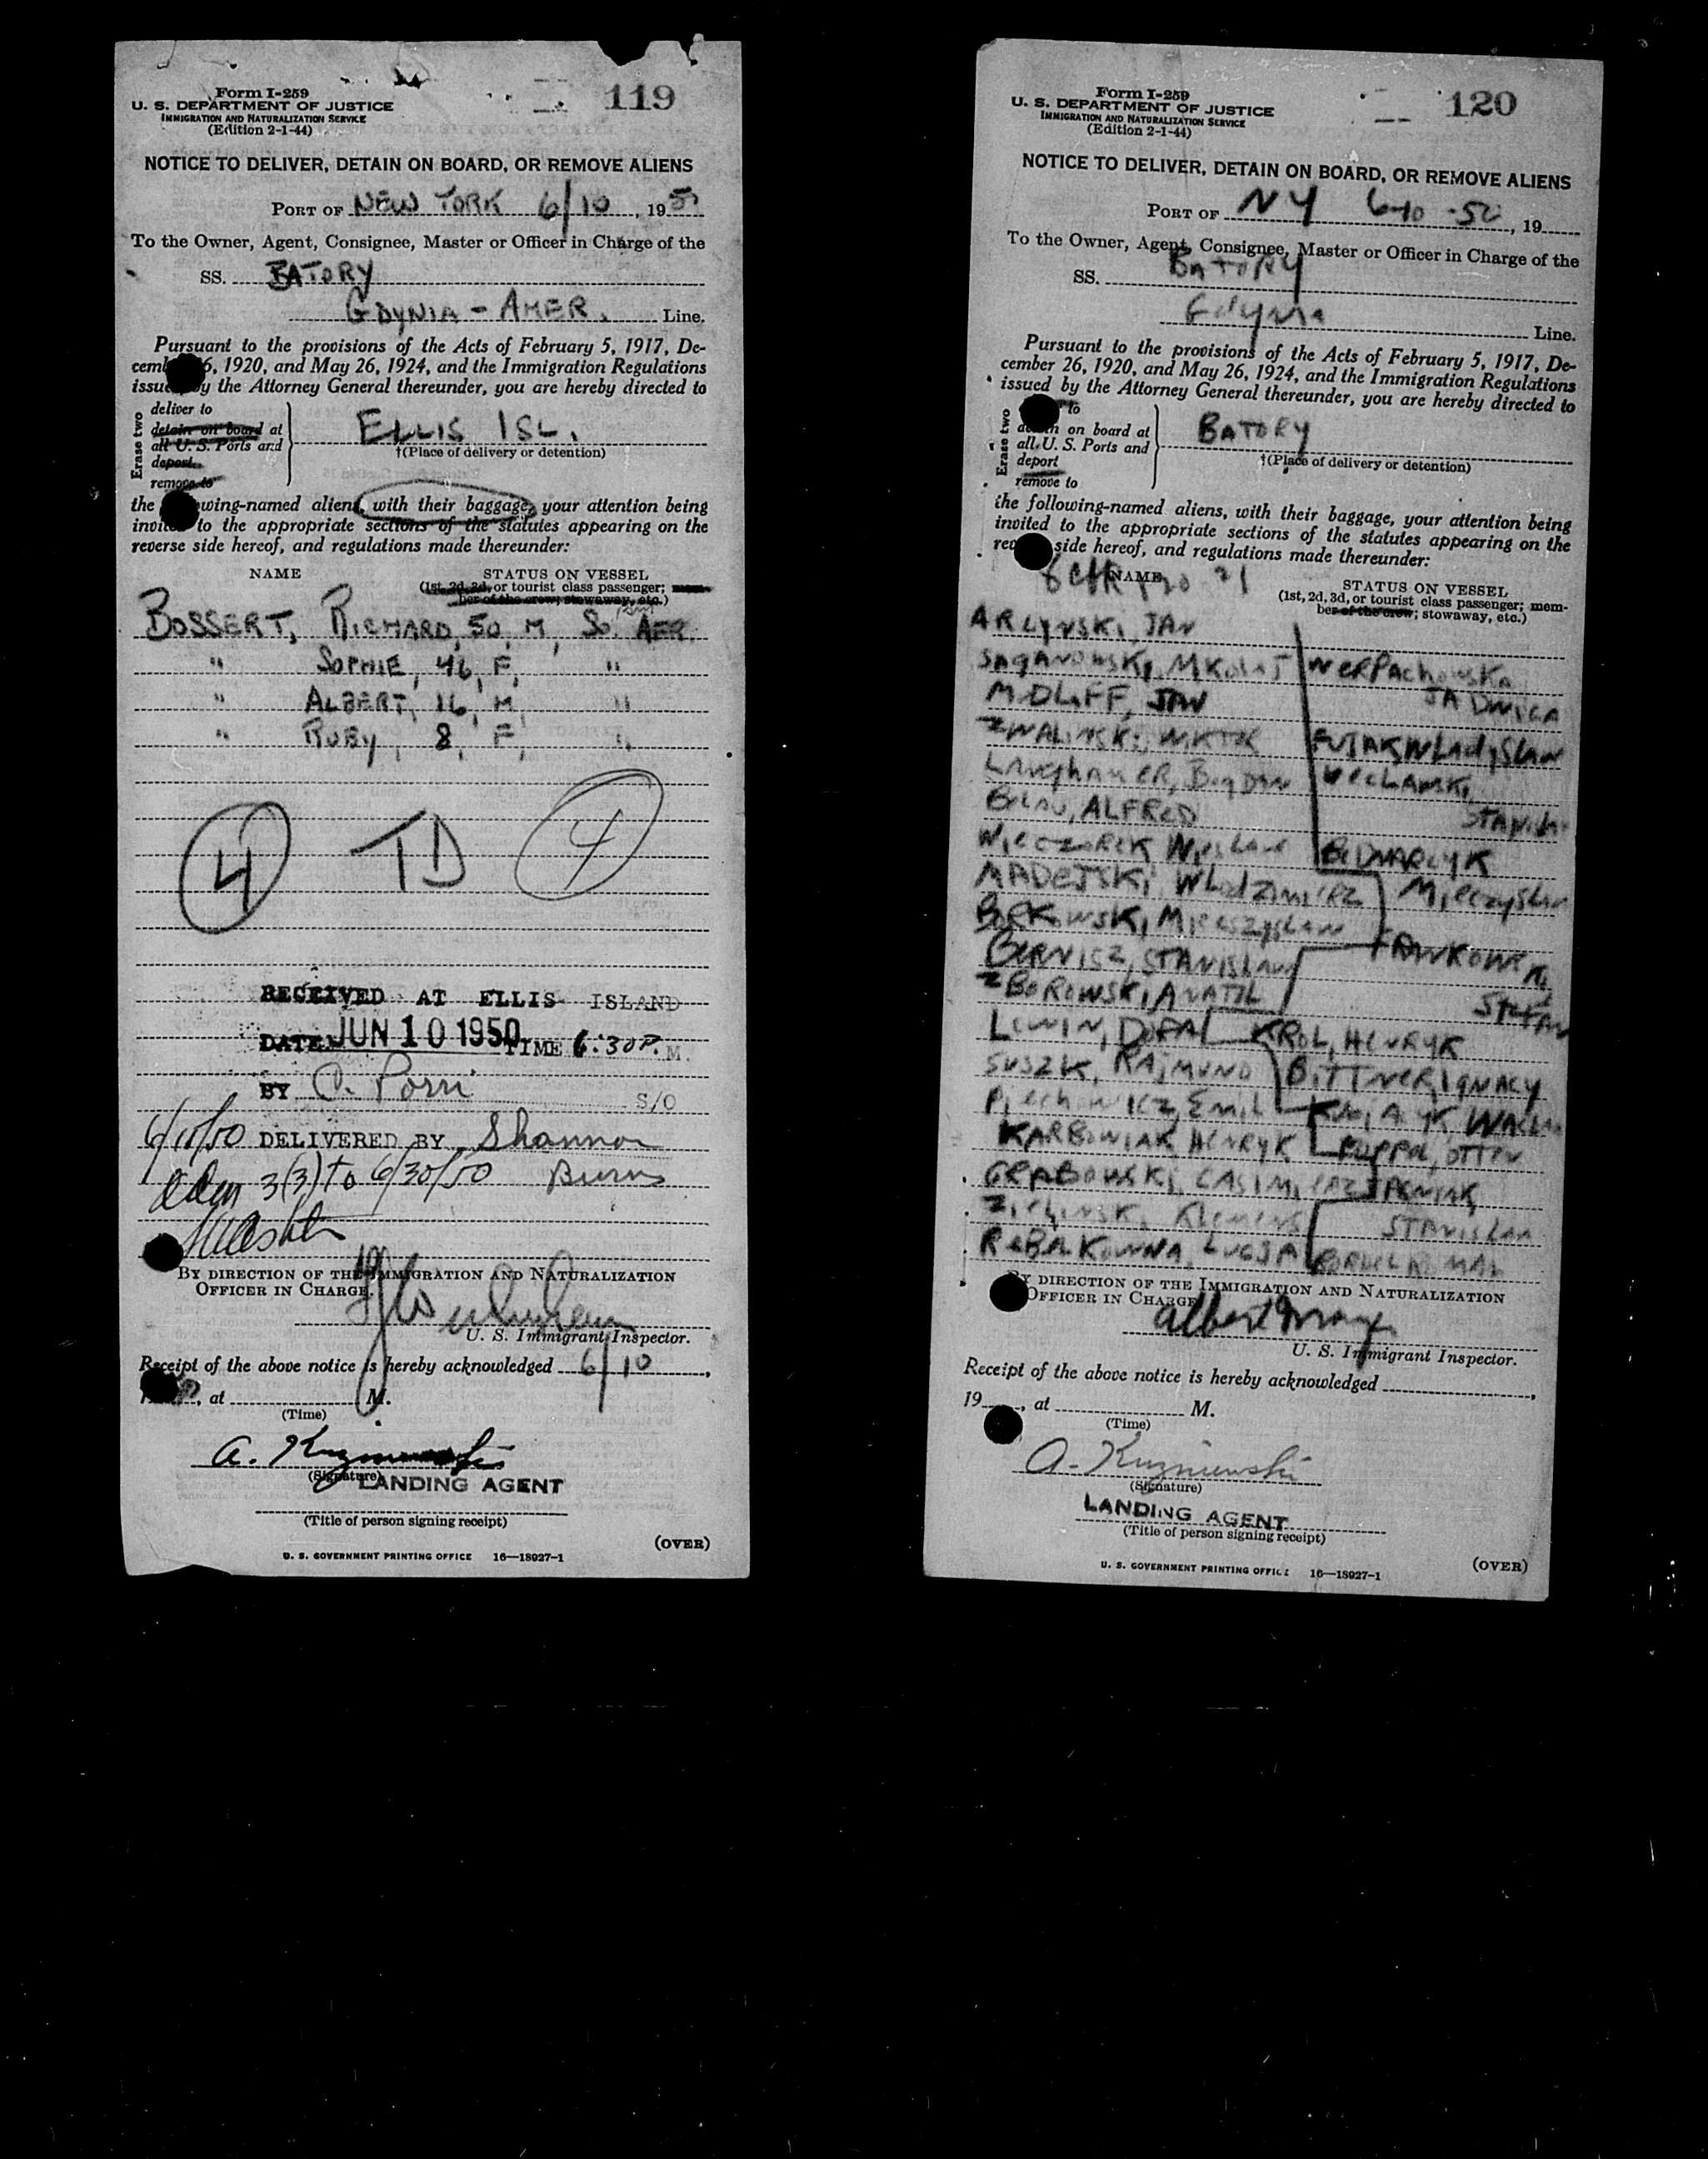 Form I-259
U. S. DEPARTMENT OF JUSTICE
IMMIGRATION AND NATURALIZATION SERVICE
(Edition 2-1-44)
119
NOTICE TO DELIVER, DETAIN ON BOARD, OR REMOVE ALIENS
PORT OF NEW YORK 6/10, 1950
To the Owner, Agent, Consignee, Master or Officer in Charge of the
SS. BATORY
GDYNIA - AMER. Line.
Pursuant to the provisions of the Acts of February 5, 1917, De-
6, 1920, and May 26, 1924, and the Immigration Regulations
the Attorney General thereunder, you are hereby directed to
Erase two
deliver to
detain on board at
all U. S. Ports and
deport
remove to
ELLIS ISL.
†(Place of delivery or detention)
the wing-named aliens, with their baggage, your attention being
to the appropriate sections of the statutes appearing on the
reverse side hereof, and regulations made thereunder:
NAME
STATUS ON VESSEL
(1st, 2d, 3d, or tourist class passenger; mem-
ber of the crew; stowaway, etc.)
BOSSERT, RICHARD, 50, M, So. AFR.
" SOPHIE, 46, F, "
" ALBERT, 16, M, "
" RUBY, 8, F, "
4 TD 4
RECEIVED AT ELLIS ISLAND
DATE JUN 10 1950 TIME 6:30 P. M.
BY S/O
6/10/50 DELIVERED BY Shannon
3(3) to 6/30/50 Burns
BY DIRECTION OF THE IMMIGRATION AND NATURALIZATION
OFFICER IN CHARGE.
U. S. Immigrant Inspector.
Receipt of the above notice is hereby acknowledged 6/10,
, at M.
(Time)
A. Kuzniewski
(Signature)
LANDING AGENT
(Title of person signing receipt)
(OVER)
U. S. GOVERNMENT PRINTING OFFICE 16—18927-1
Form I-259
U. S. DEPARTMENT OF JUSTICE
IMMIGRATION AND NATURALIZATION SERVICE
(Edition 2-1-44)
120
NOTICE TO DELIVER, DETAIN ON BOARD, OR REMOVE ALIENS
PORT OF NY 6-10-50, 19
To the Owner, Agent, Consignee, Master or Officer in Charge of the
SS. BATORY
Gdynia Line.
Pursuant to the provisions of the Acts of February 5, 1917, De-
cember 26, 1920, and May 26, 1924, and the Immigration Regulations
issued by the Attorney General thereunder, you are hereby directed to
Erase two
to
on board at
all U. S. Ports and
deport
remove to
BATORY
†(Place of delivery or detention)
the following-named aliens, with their baggage, your attention being
invited to the appropriate sections of the statutes appearing on the
side hereof, and regulations made thereunder:
NAME
STATUS ON VESSEL
(1st, 2d, 3d, or tourist class passenger; mem-
ber of the crew; stowaway, etc.)
ARLYNSKI, JAN
SAGANOWSKI, MKOLAJ WERPACHOWSKA
MIDLAFF, JAN JADWIGA
ZWALINSKI, WIKTOR FUTAK WLADYSLAW
LANGHAMER, BOGDAN WECLAWSKI,
BILAU, ALFRED
WIECZOREK WIESLAW BEDNARCYK
MADEJSKI WLODZIMIERZ MIECZYSLAW
BORKOWSKI, MIECSZYSLAW
BERNISZ, STANISLAW FRANKOWSKI,
ZBOROWSKI, ANATOL STEFAN
LEWIN, DORA KROL, HENRYK
SUSZK, RAJMUND BITTNER, IGNACY
PIECHOWICZ, EMIL
KARBOWIAK HENRYK
GRABOWSKI, CASIMIERZ
ZIELINSKI, KLEMENS STANISLAW
BY DIRECTION OF THE IMMIGRATION AND NATURALIZATION
OFFICER IN CHARGE
U. S. Immigrant Inspector.
Receipt of the above notice is hereby acknowledged ,
19 , at M.
(Time)
A. Kuzniewski
(Signature)
LANDING AGENT
(Title of person signing receipt)
(OVER)
U. S. GOVERNMENT PRINTING OFFICE 16—18927-1